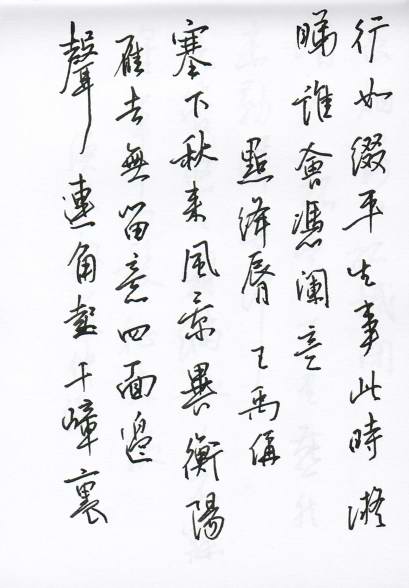 行如綴平生事此時凝
睇誰會憑瀾意
點絳脣 王禹偁
塞下秋来風景異衡陽
雁去無留意四面邊
聲連角起千嶂裏